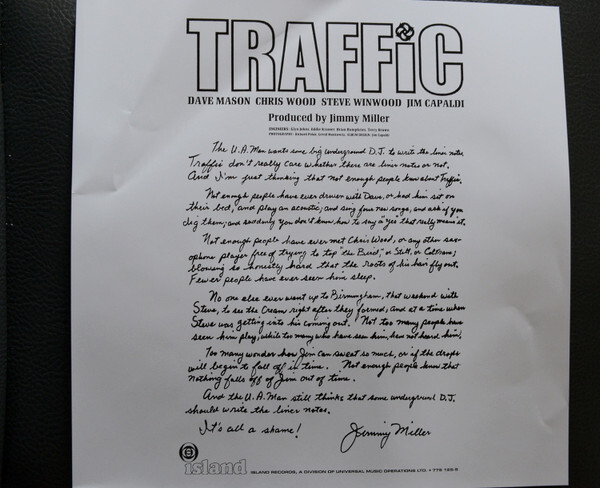 TRAFFiC
DAVE MASON CHRIS WOOD STEVE WINWOOD JIM CAPALDI
Produced by Jimmy Miller
ENGINEERS: Glyn Johns, Eddie Kramer, Brian Humphries, Terry Brown
The U.A. Man wants some big underground D.J. to write the liner notes.
Traffic don't really care whether there are liner notes or not.
And I'm just thinking that not enough people know about Traffic.
Not enough people have ever driven with Dave, or had him sit on
their bed, and play an acoustic, and sing four new songs, and ask if you
dig them; and suddenly you don't know how to say a "yes" that really means it.
Not enough people have ever met Chris Wood, or any other sax-
ophone player free of trying to top "the Bird," or Stitt, or Coltrane;
blowing so honestly hard that the roots of his hair fly out.
Fewer people have ever seen him sleep.
No one else ever went up to Birmingham, that weekend with
Steve, to see the Cream right after they formed, and at a time when
Steve was getting into his coming out. Not too many people have
seen him play, while too many who have seen him, have not heard him.
Too many wonder how Jim can sweat so much, or if the drops
will begin to fall off in time. Not enough people know that
nothing falls off of Jim out of time.
And the U.A. Man still thinks that some underground D.J.
should write the liner notes.
It's all a shame!
Jimmy Miller
island
ISLAND RECORDS, A DIVISION OF UNIVERSAL MUSIC OPERATIONS LTD. • 775 125-5